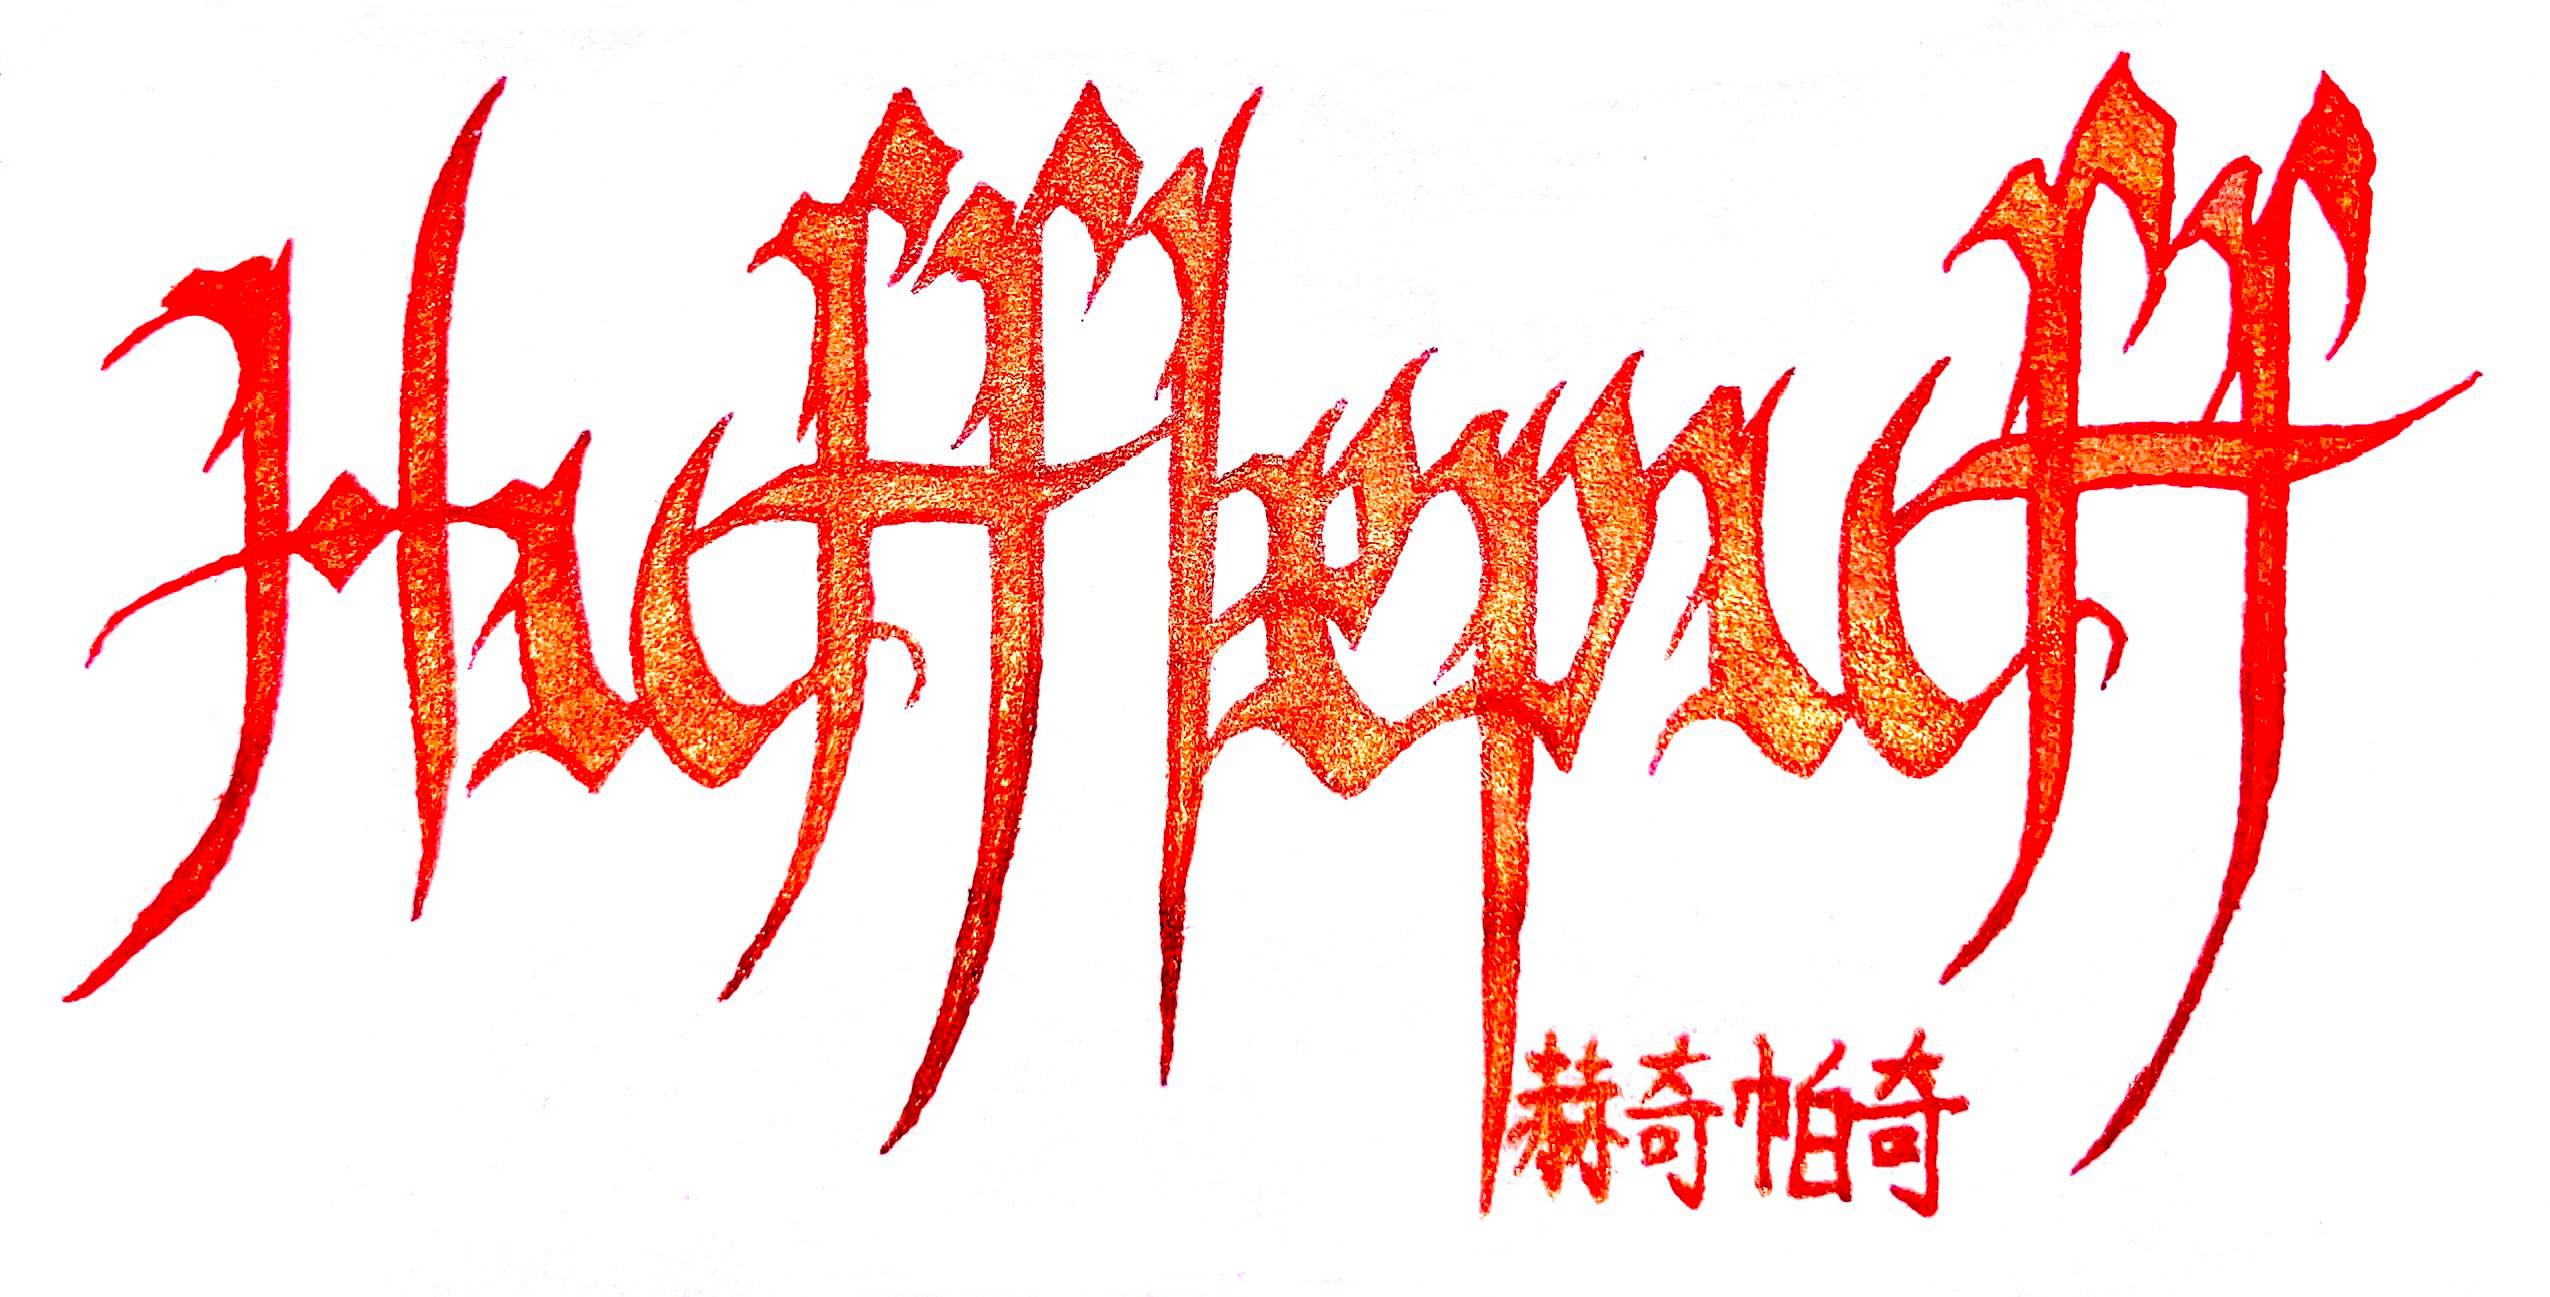 Hufflepuff
赫奇帕奇